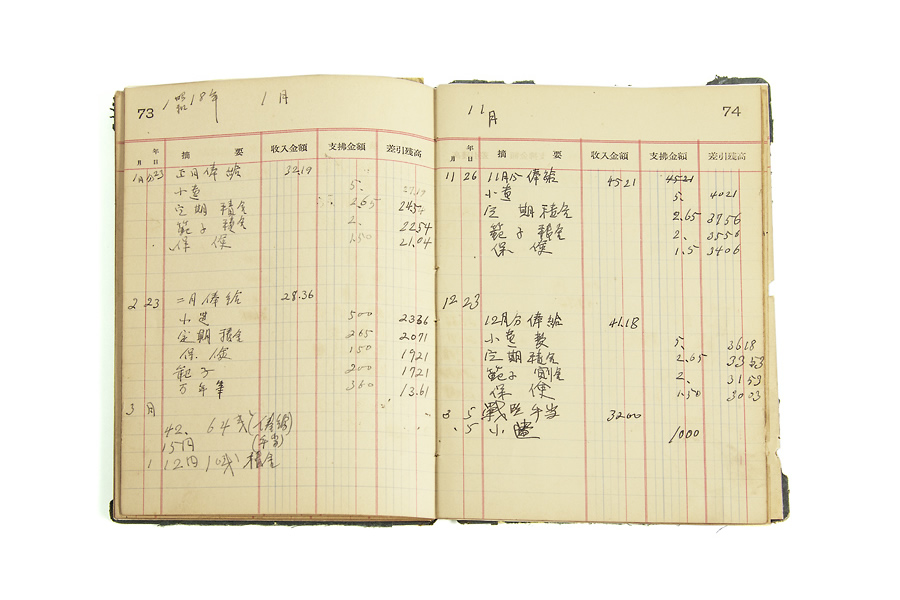 73 昭和18年 1月
年
月 日 摘 要 收入金額 支拂金額 差引殘高
1月分23 正月俸給 32.19
小遣 5. 27.19
定期積金 2.65 2454
範子積金 2. 2254
保険 1.50 21.04
2 23 二月俸給 28.36
小遣 500 2336
定期積金 265 2071
保険 150 1921
範子 200 1721
万年筆 360 13.61
3月
42. 64戋(俸給)
15円(手当)
1 12円10戋 積金
11月 74
年
月 日 摘 要 收入金額 支拂金額 差引殘高
11 26 11月分俸給 4521 4521
小遣 5. 4021
定期積金 2.65 3756
範子積金 2. 3556
保険 1.5 3406
12 23
12月分俸給 41.18
小遣 5. 3618
定期積金 2.65 3353
範子 積金 2. 3153
保険 1.50 3003
3 5 手当 3200
5 小 1000